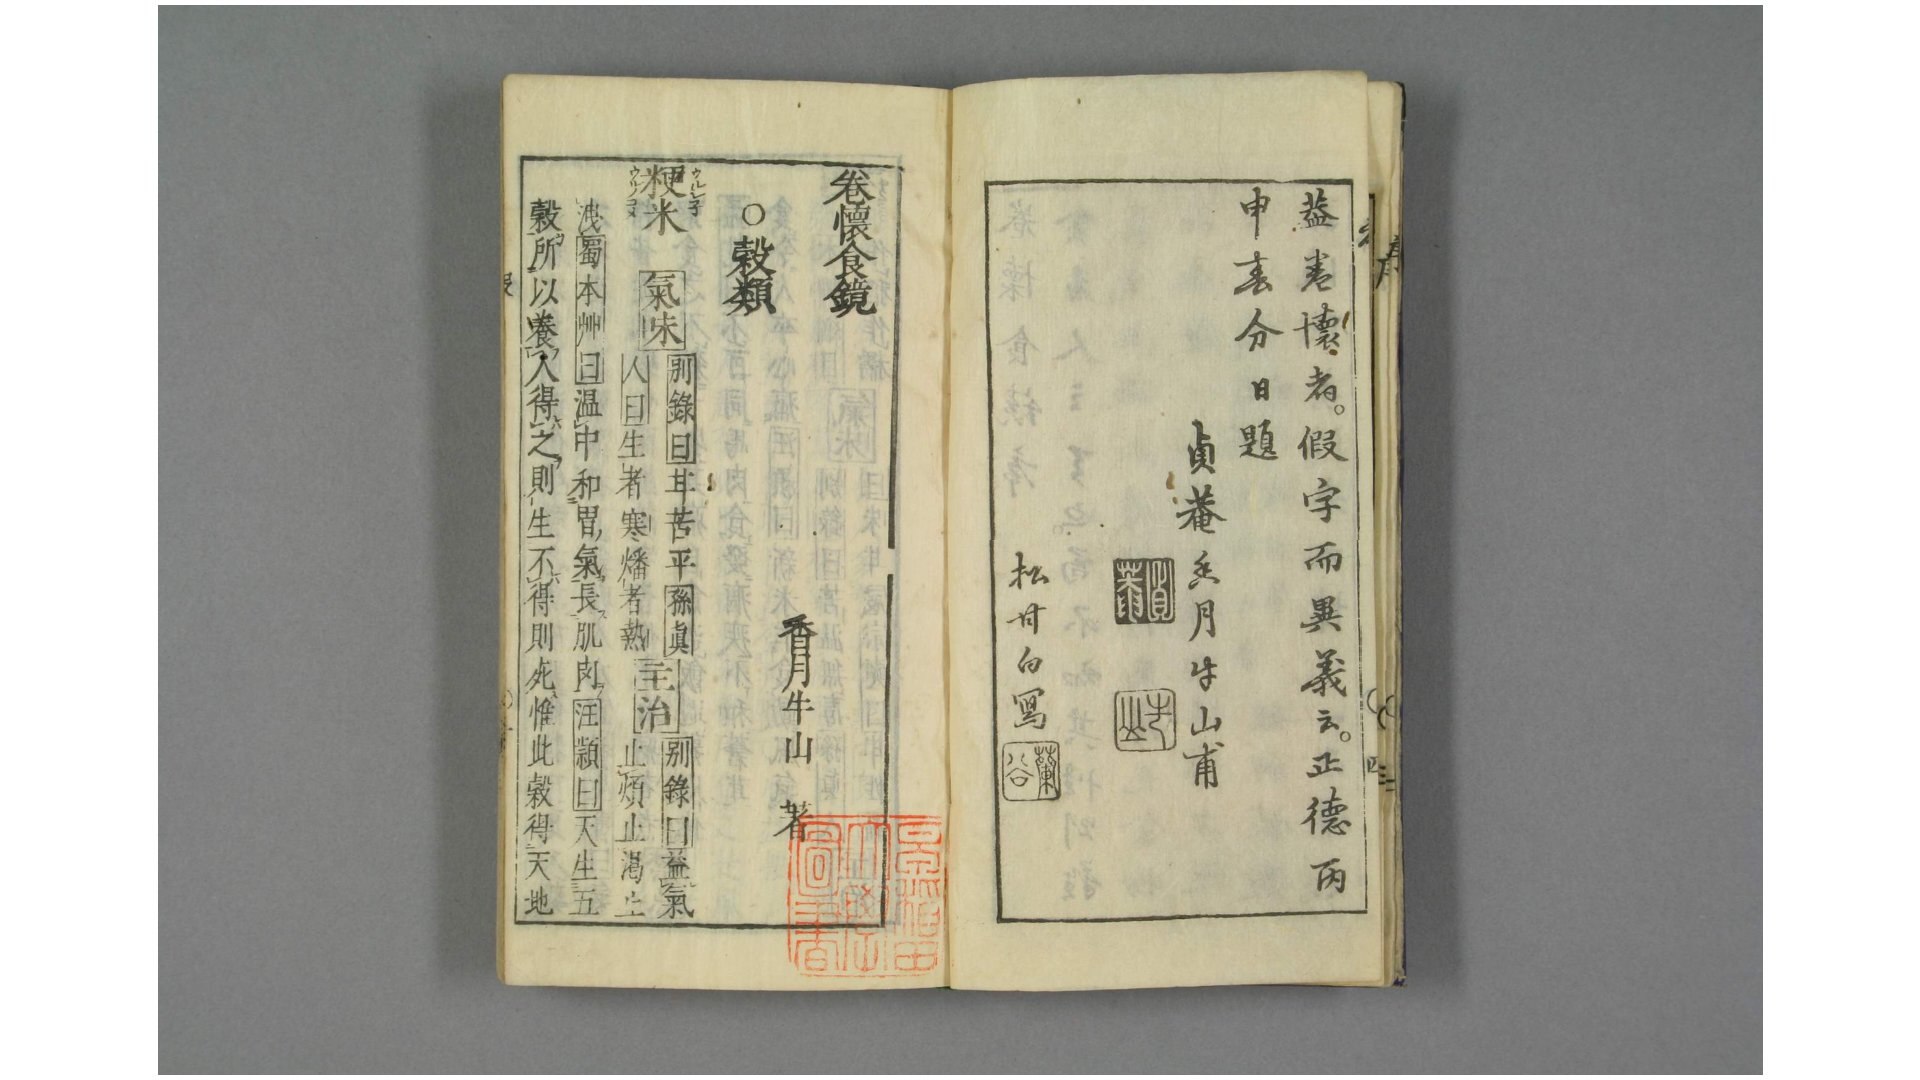 蓋卷懷者。假字而異義云。正德丙
申春分日題
貞菴香月牛山甫
貞菴
牛山
松甘白寫
蘭谷
卷懷食鏡
香月牛山 著
○穀類
粳米 氣味 別錄曰甘苦平孫眞
人曰生者寒燔者熱 主治 別錄曰益氣
止煩止渴止
洩蜀本艸曰温中和胃氣長肌肉汪穎曰天生五
穀所以養人得之則生不得則死惟此穀得天地